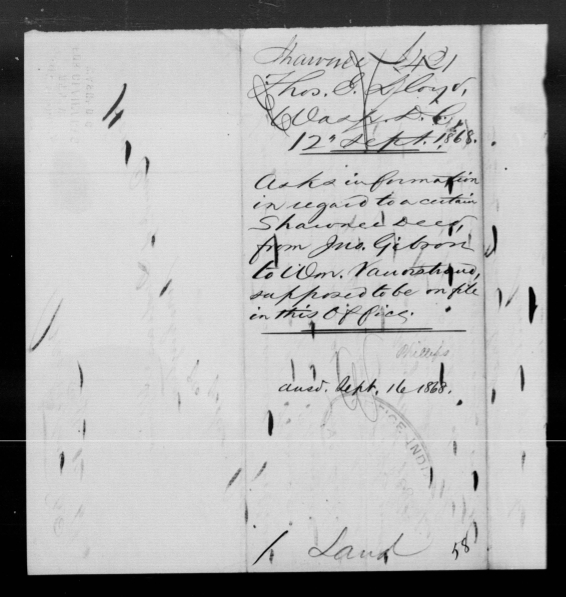 Shawnee L 421
Thos. E. Lloyd,
Wash. D.C.
12" Sept. 1868.
Asks information
in regard to a certain
Shawnee Deed,
from Jno. Gibson
to Wm. Vanorstrand,
supposed to be on file
in this Office.
Phillips
ansd. Sept. 16 1868.
OFFICE IND
1 Land
58
4